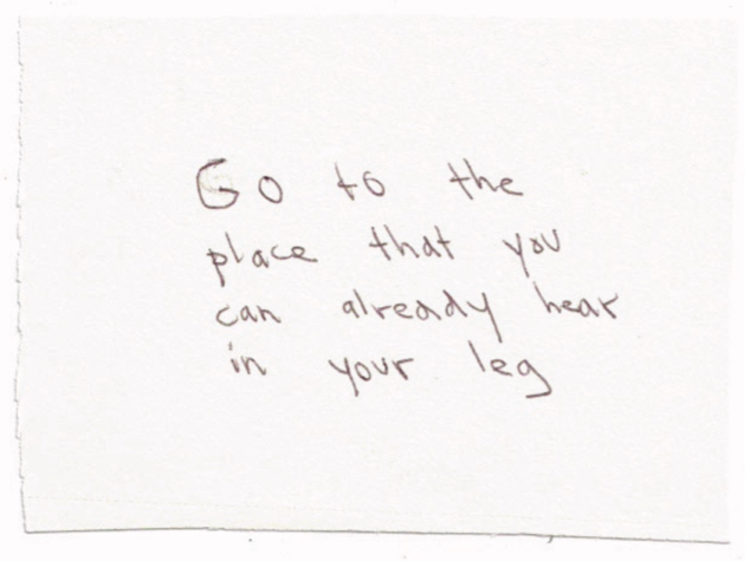 Go to the
place that you
can already hear
in your leg